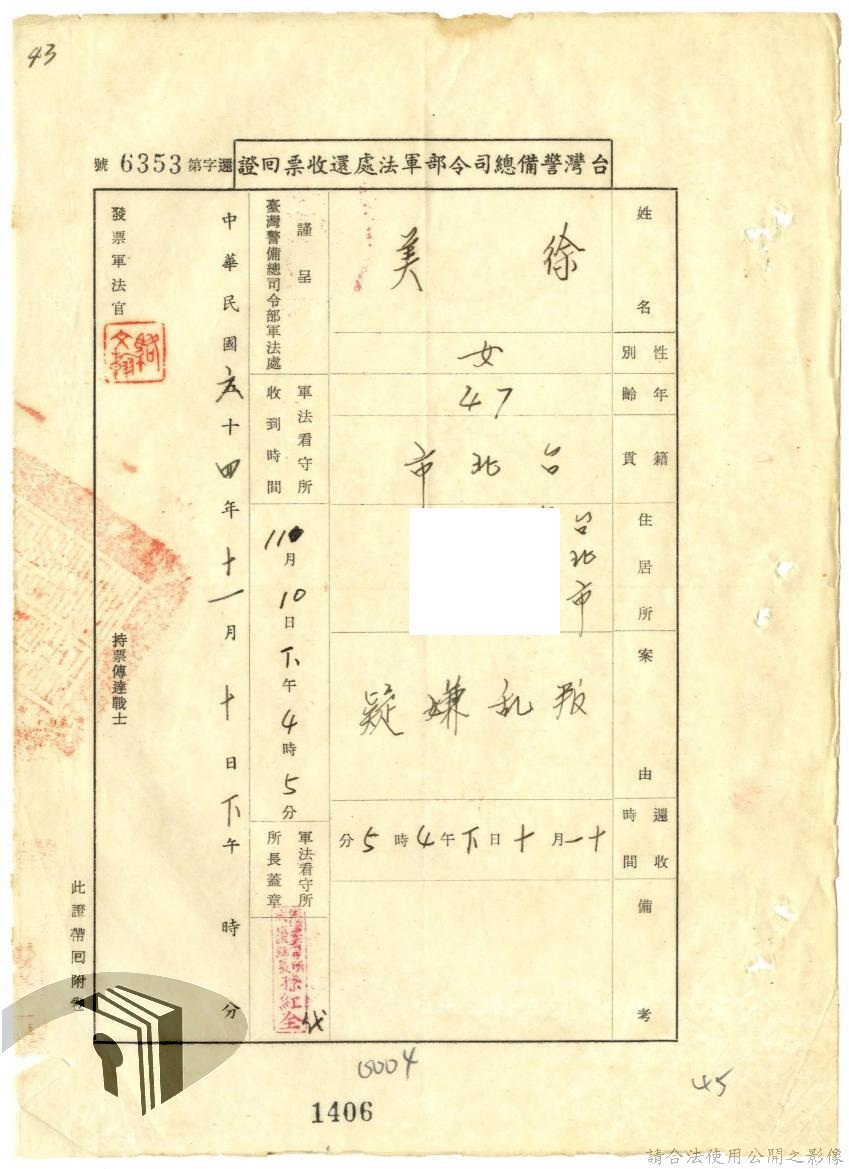 43
台灣警備總司令部軍法處還收票回證
還字第6353號
姓名
徐美
性別
女
年齡
47
籍貫
台北市
住居所
台北市
案由
叛乱嫌疑
還收時間
十一月十日下午4時5分
備考
謹呈
臺灣警備總司令部軍法處
軍法看守所收到時間
11月10日下午4時5分
軍法看守所所長蓋章
孫紅全
代
中華民國五十四年十一月十日下午時分
發票軍法官
持票傳達戰士
此證帶回附卷
0004
1406
45
請合法使用公開之影像